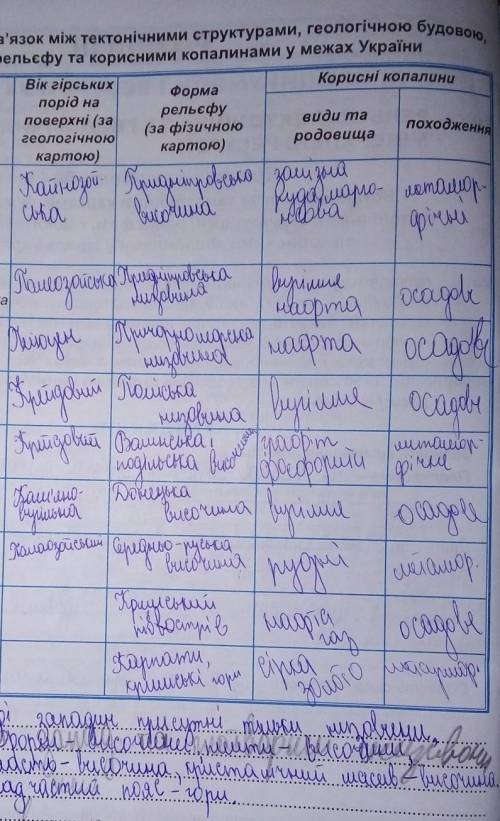 в'язок між тектонічними структурами, геологічною будовою,
рельєфу та корисними копалинами у межах України
Вік гірських
порід на
поверхні (за
геологічною
картою)
Форма
рельєфу
(за фізичною
картою)
Корисні копалини
види та
родовища
походження
Кайнозой-
ська
Придніпровська
височина
залізна
руда, марга-
метамор-
фічні
Палеозойська
Придніпровська
низовина
вугілля
нафта
осадове
Причорноморська
низовина
нафта
осадове
Крейдовий
Поліська
низовина
вугілля
осадове
Крейдовий
Волинська,
подільська височини
графіт
фосфорити
метамор-
фічне
Кам'яно-
вугільна
Донецька
височина
вугілля
осадове
Середньо-руська
височина
рудні
метамор.
Кримський
півострів
нафта
газ
осадове
Карпати,
кримські гори
сірка
золото
западин присутні тільки низовини,
височина, кристалічний масив - височина.
пояс - гори.